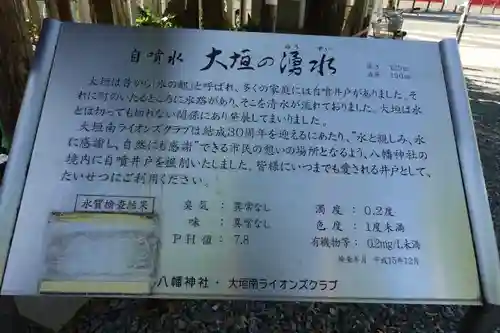 自噴水 大垣の湧水
ゆう すい
大垣は昔から「水の都」と呼ばれ、多くの家庭には自噴井戸がありました。そ
れに町のいたるところに水路があり、そこを清水が流れておりました。大垣は水
とは切っても切れない関係にあり発展してまいりました。
大垣南ライオンズクラブは結成30周年を迎えるにあたり、"水と親しみ、水
に感謝し自然にも感謝"できる市民の憩いの場所となるよう、八幡神社の
境内に自噴井戸を掘削いたしました。皆様にいつまでも愛される井戸として、
たいせつにご利用ください。
水質検査結果
臭気：異常なし
濁度：0.2度
味：異常なし
色度：1度未満
PH値：7.8
有機物等：0.2mg/L未満
検査年月 平成15年12月
八幡神社・大垣南ライオンズクラブ